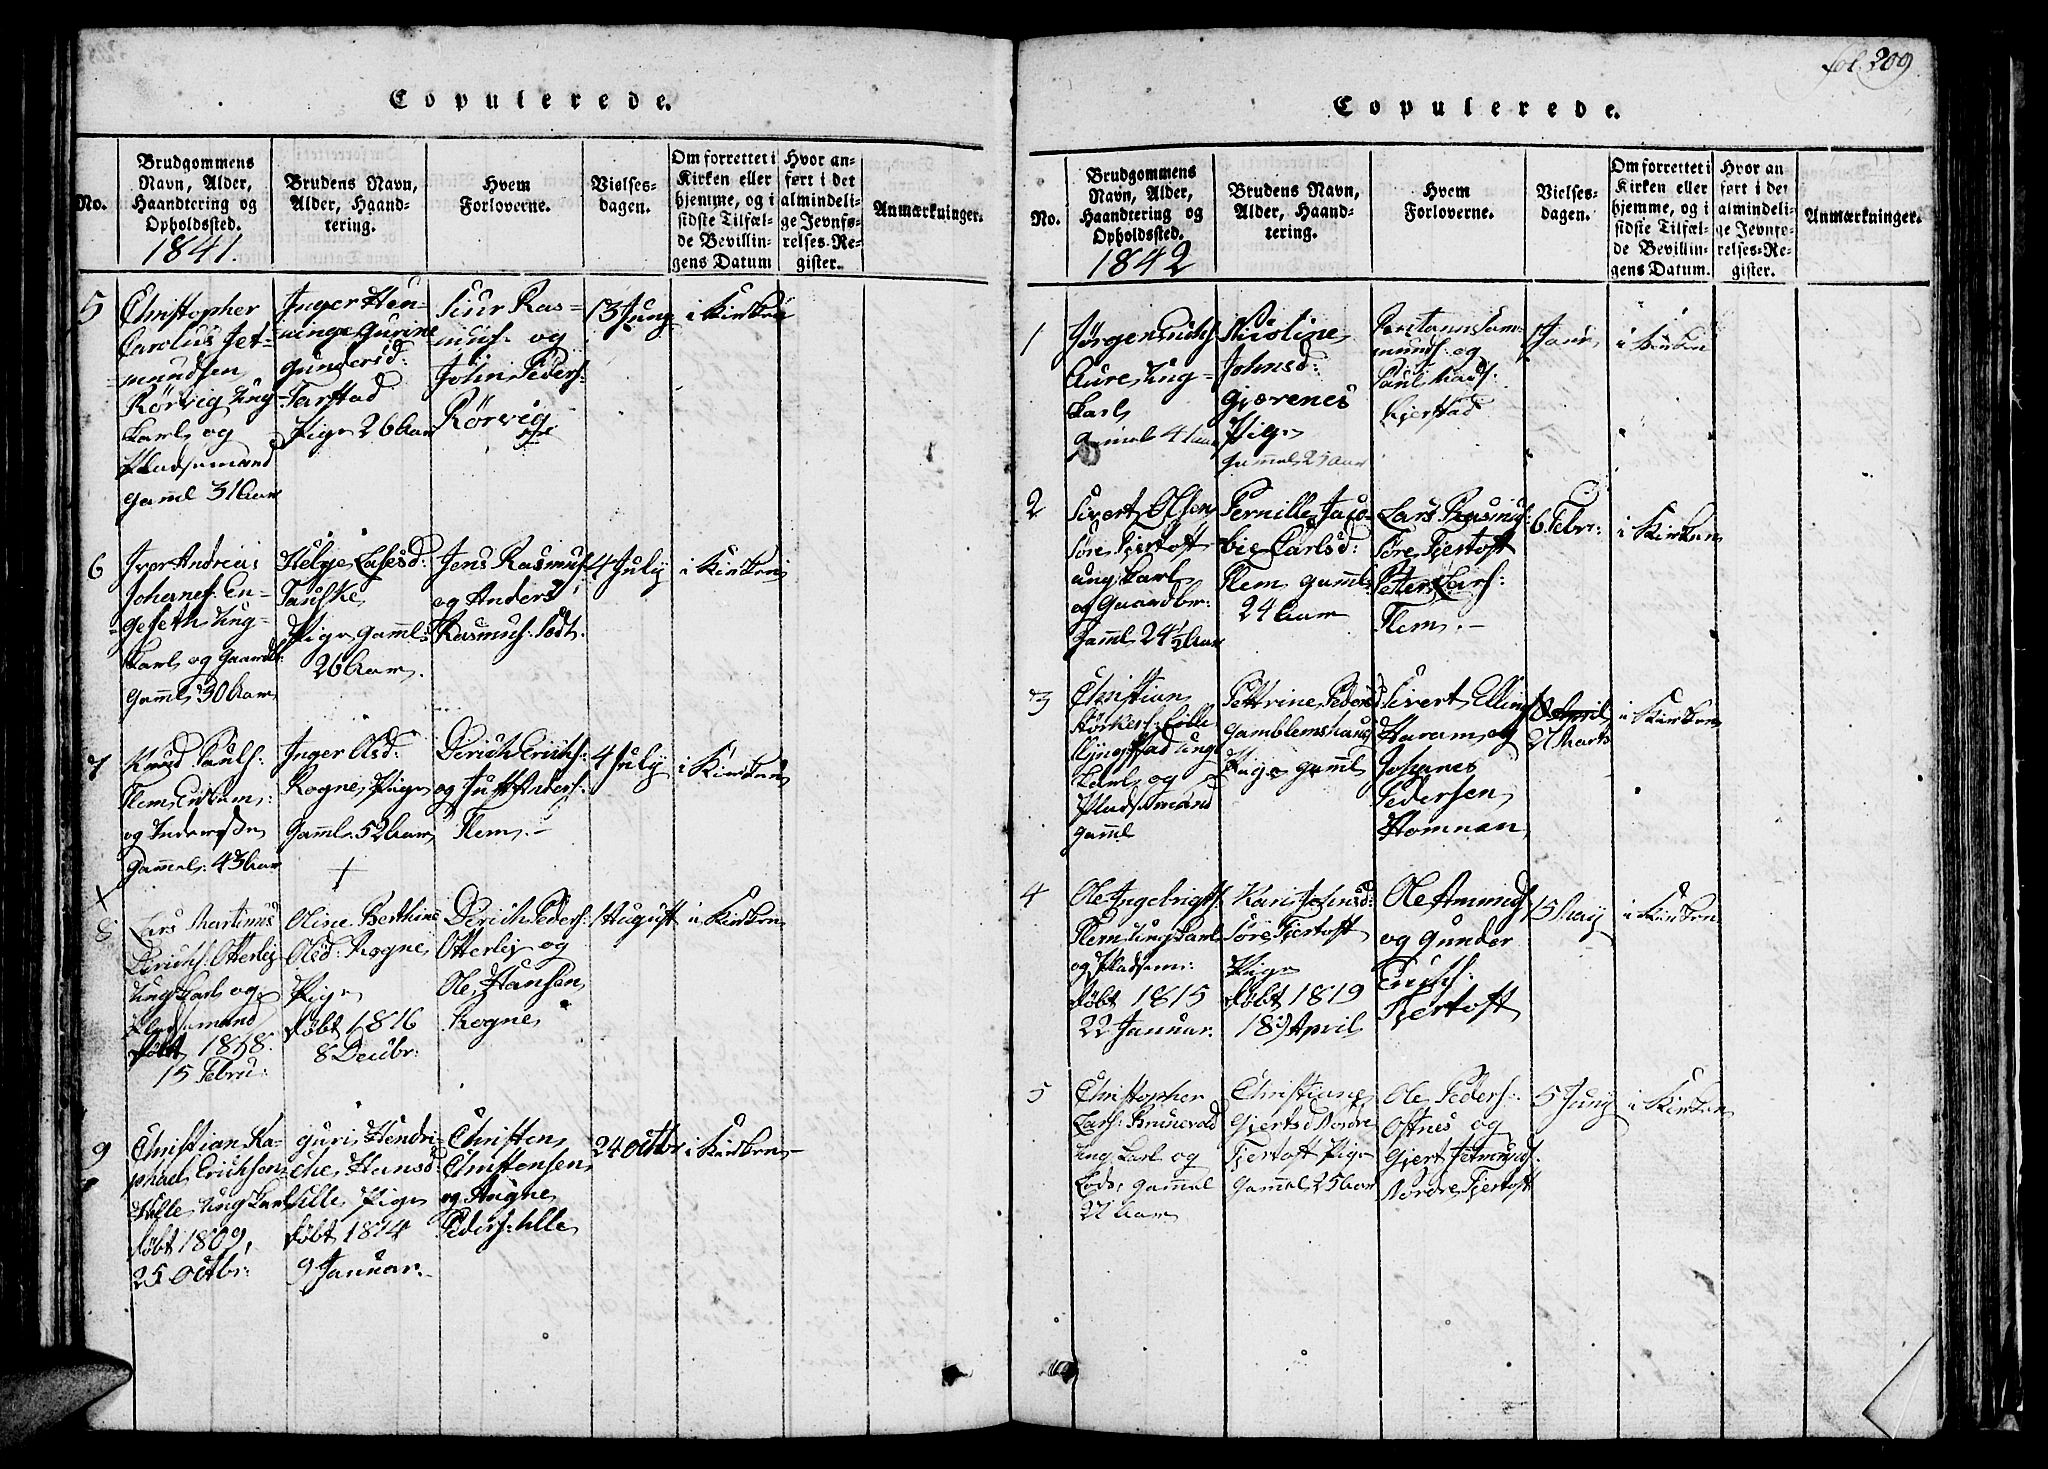 Copulerede.
No.
Brudgommens
Navn, Alder,
Haandtering og
Opholdssted.
1841.
Brudens Navn,
Alder, Haand-
tering.
Hvem
Forloverne.
Vielses-
dagen.
Om forrettet i
Kirken eller
hjemme, og i
sidste Tilfæl-
de Bevillin-
gens Datum
Hvor an-
ført i det
almindeli-
ge Jevnfø-
relses-Re-
gister.
Anmærkninger.
5
Christopher
Carolus Jet-
mundsen
Rörvig Ung-
karl og
Pladsemand
gaml 31 Aar
Inger Hen-
ninge Gurine
Gundersd:
Tarstad
Pige 26 Aar
Siur Ras-
mus: og
John Peders:
Rörvig
13 Juny
i Kirken
6
Iver Andreas
Johannes: En-
geseth Ung-
karl og Gaardb:
gamml 30 Aar
Helge Lasesd:
Tauske
Pige gamml:
26 Aar.
Jens Rasmus:
og Anders
Rasmus: Södt.
4 July
i Kirken
7
Knud Pauls:
Flem Enkem:
og Inderste
Gammel: 43 Aar
Inger Olsd:
Rogne Pige
Gamml. 52 Aar
Didrich Erichs:
og Just Anders:
Flem.
4 July
i Kirken
8
Lars Martinus
Didrichs: Otterlej
Ungkarl og
Pladsemand
födt 1818.
15 Febru:
Oline Berthine
Olsd: Rogne
Pige
födt 1816
8 Decibr:
Didrich Peders:
Otterlej og
Ole Hansen
Rogne
1 August
i Kirken
9
Christian Ra-
phael Erichsen
Ulle Ungkarl
födt 1809,
25 Octbr:
Guri Hendri-
che Hansd:
Ulle Pige
födt 1814
9 Januar.
Christen
Christensen
og Augne
Peders: Ulle
24 Octbr
i Kirken
fol. 209
Copulerede.
No.
Brudgommens
Navn, Alder,
Haandtering og
Opholdssted.
1842
Brudens Navn,
Alder, Haand-
tering.
Hvem
Forloverne.
Vielses-
dagen.
Om forrettet i
Kirken eller
hjemme, og i
sidste Tilfæl-
de Bevillin-
gens Datum.
Hvor an
ført i det
almindeli-
ge Jevnfø-
relses-Re-
gister.
Anmærkninger.
1
Jörgen
Aure Ung-
karl
gammel 41 Aar
Nicoline
Johnsd:
Gjærenes
Pige
gammel 25 Aar
og
Paul Mads:
Kjerstad
1 Janr
i Kirken
2
Sivert Olsen
Söre Fjertoft
ung Karl
og Gaardbr:
Gamml 24 1/2 Aar
Pernille Jaco-
bie Carlsd:
Flem gamml:
24 Aar
Lars Rasmus:
Söre Fjertoft
Petter Lars:
Flem.
6 Febr:
i Kirken
3
Christian
Lille
Ung-
karl og
Pladsemand
gamml
Pettrine Peders
Gamblemshaug
Pige gamml
Sivert Elling
Haram og
Johanes
Pedersen
Homnan
18 April
27 Marts
i Kirken
4
Ole Ingebrigts:
Flem Ung Karl
og Pladsem:
födt 1815
22 Januar.
Kari Johnsd:
Söre Fjertoft
Pige
födt 1819
18 April
Ole Amunds
og Gunder
Erichs:
Fjertoft
15 May
i Kirken
5
Christopher
Lars: Brunevold
Ung Karl og
Lods, gammel
22 Aar
Christiane
Gjertsd Nordre
Fjertoft Pige
Gammel 25 Aar
Ole Peders:
Ostnes og
Gjert Jetmunds.
Nordre Fjertoft
5 Juny
i Kirken